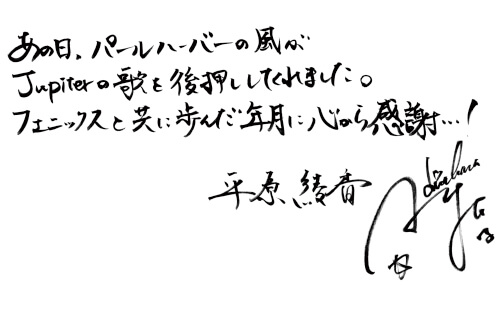 あの日、パールハーバーの風が
Jupiterの歌を後押ししてくれました。
フェニックスと共に歩んだ年月に心から感謝…!
平原綾香